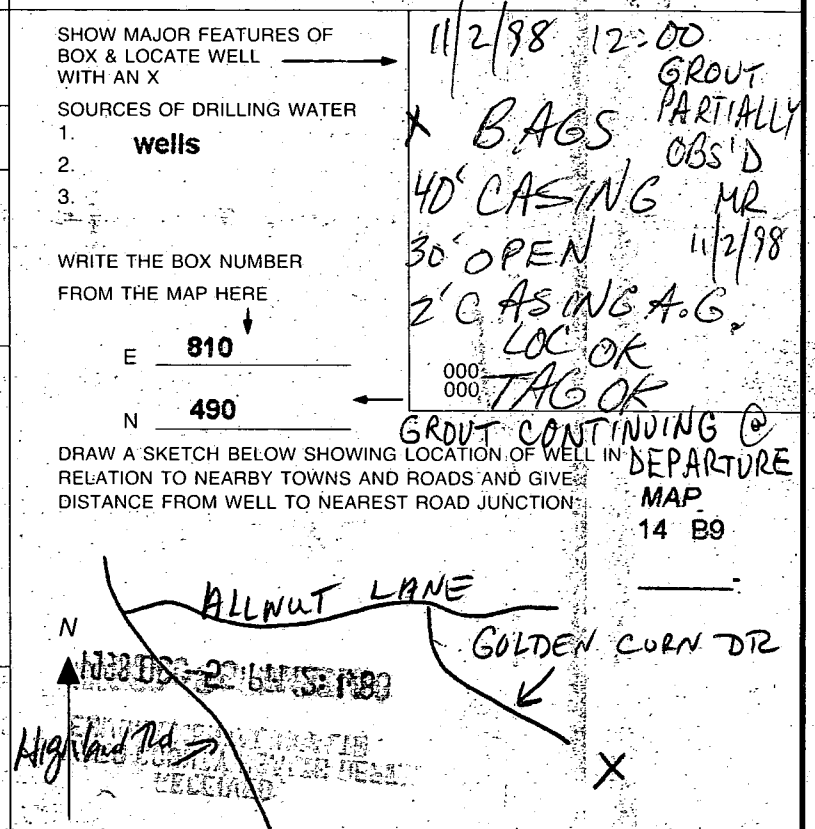 SHOW MAJOR FEATURES OF
BOX & LOCATE WELL
WITH AN X
SOURCES OF DRILLING WATER
1. wells
2.
3.
WRITE THE BOX NUMBER
FROM THE MAP HERE
E 810
N 490
11/2/98 12:00
GROUT
PARTIALLY
OBS'D
MR
11/2/98
X BAGS
40' CASING
30' OPEN
2' CASING A.G.
LOC OK
000
000
TAG OK
GROUT CONTINUING @
DEPARTURE
DRAW A SKETCH BELOW SHOWING LOCATION OF WELL IN
RELATION TO NEARBY TOWNS AND ROADS AND GIVE
DISTANCE FROM WELL TO NEAREST ROAD JUNCTION
MAP
14 B9
ALLNUT LANE
N
GOLDEN CORN DR
Highland Rd
X
RECEIVED